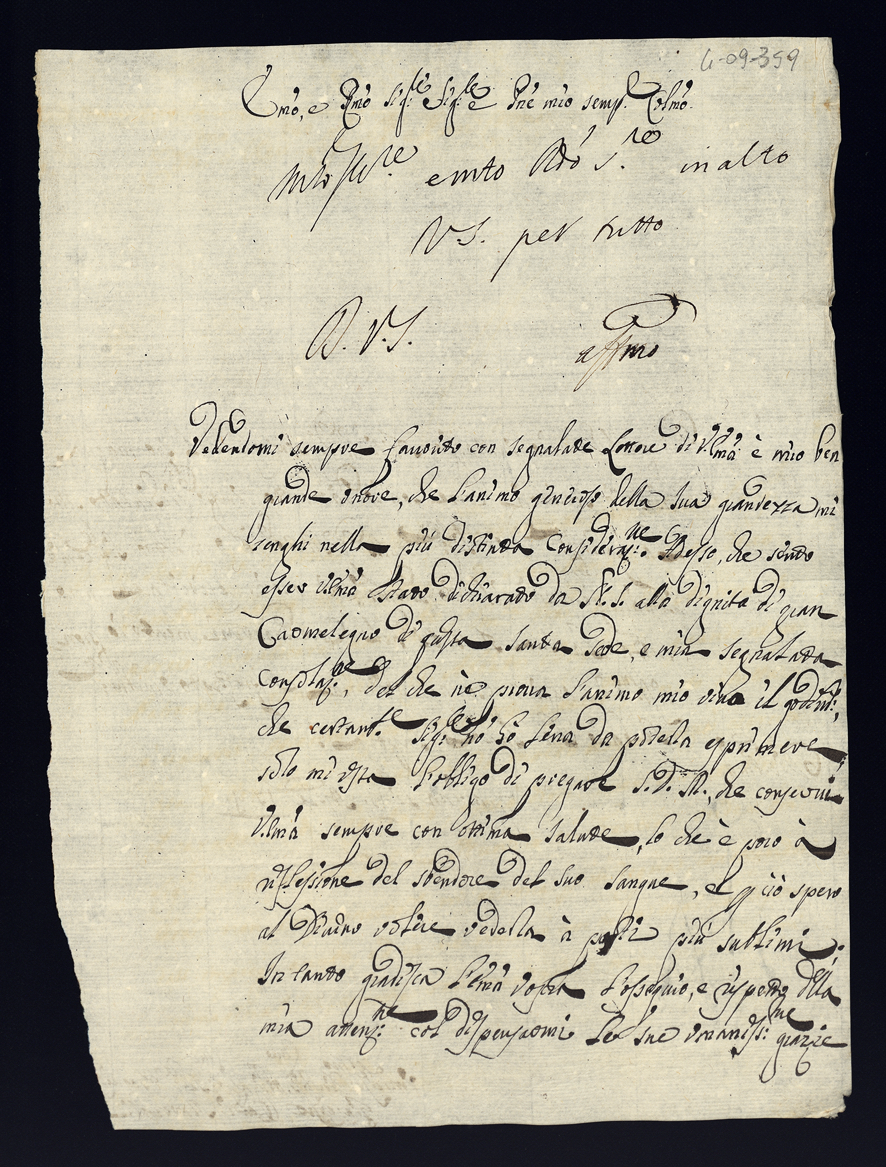 4-09-359
Emo, e Rmo Sigre Sigre e Pne mio semp. Colmo.
Mto Illre emto Rdo s.re in alto
V.S. per tutto
D. V.S. affmo
Vedendomi sempre favorito con segnalate Lettere di V.Emà è mio ben
grande onore, che l'animo generoso della sua grandezza mi
tenghi nella più distinta Consideraz:ne Adesso, che sento
esser V.Emà stato dichiarato da N.S. alla dignità di gran
Camerlegno di questa Santa Sede, e mia segnalata
consolaz:ne, del che nè prova l'animo mio vivo il godim:,
che certam.te Sig.re nò hò lena da poterla esprimere
solo mi resta l'obbligo di pregare S.D.M., che conservi
V.Emà sempre con ottima salute, lo che è poco à
riflessione del splendore del suo sangue, e p ciò spero
al Divino volere vederla à posti più sublimi.
In tanto gradisca l'Emà vostra l'ossequio, e rispetto della
mia attenz:ne col dispensarmi le sue umaniss:me grazie